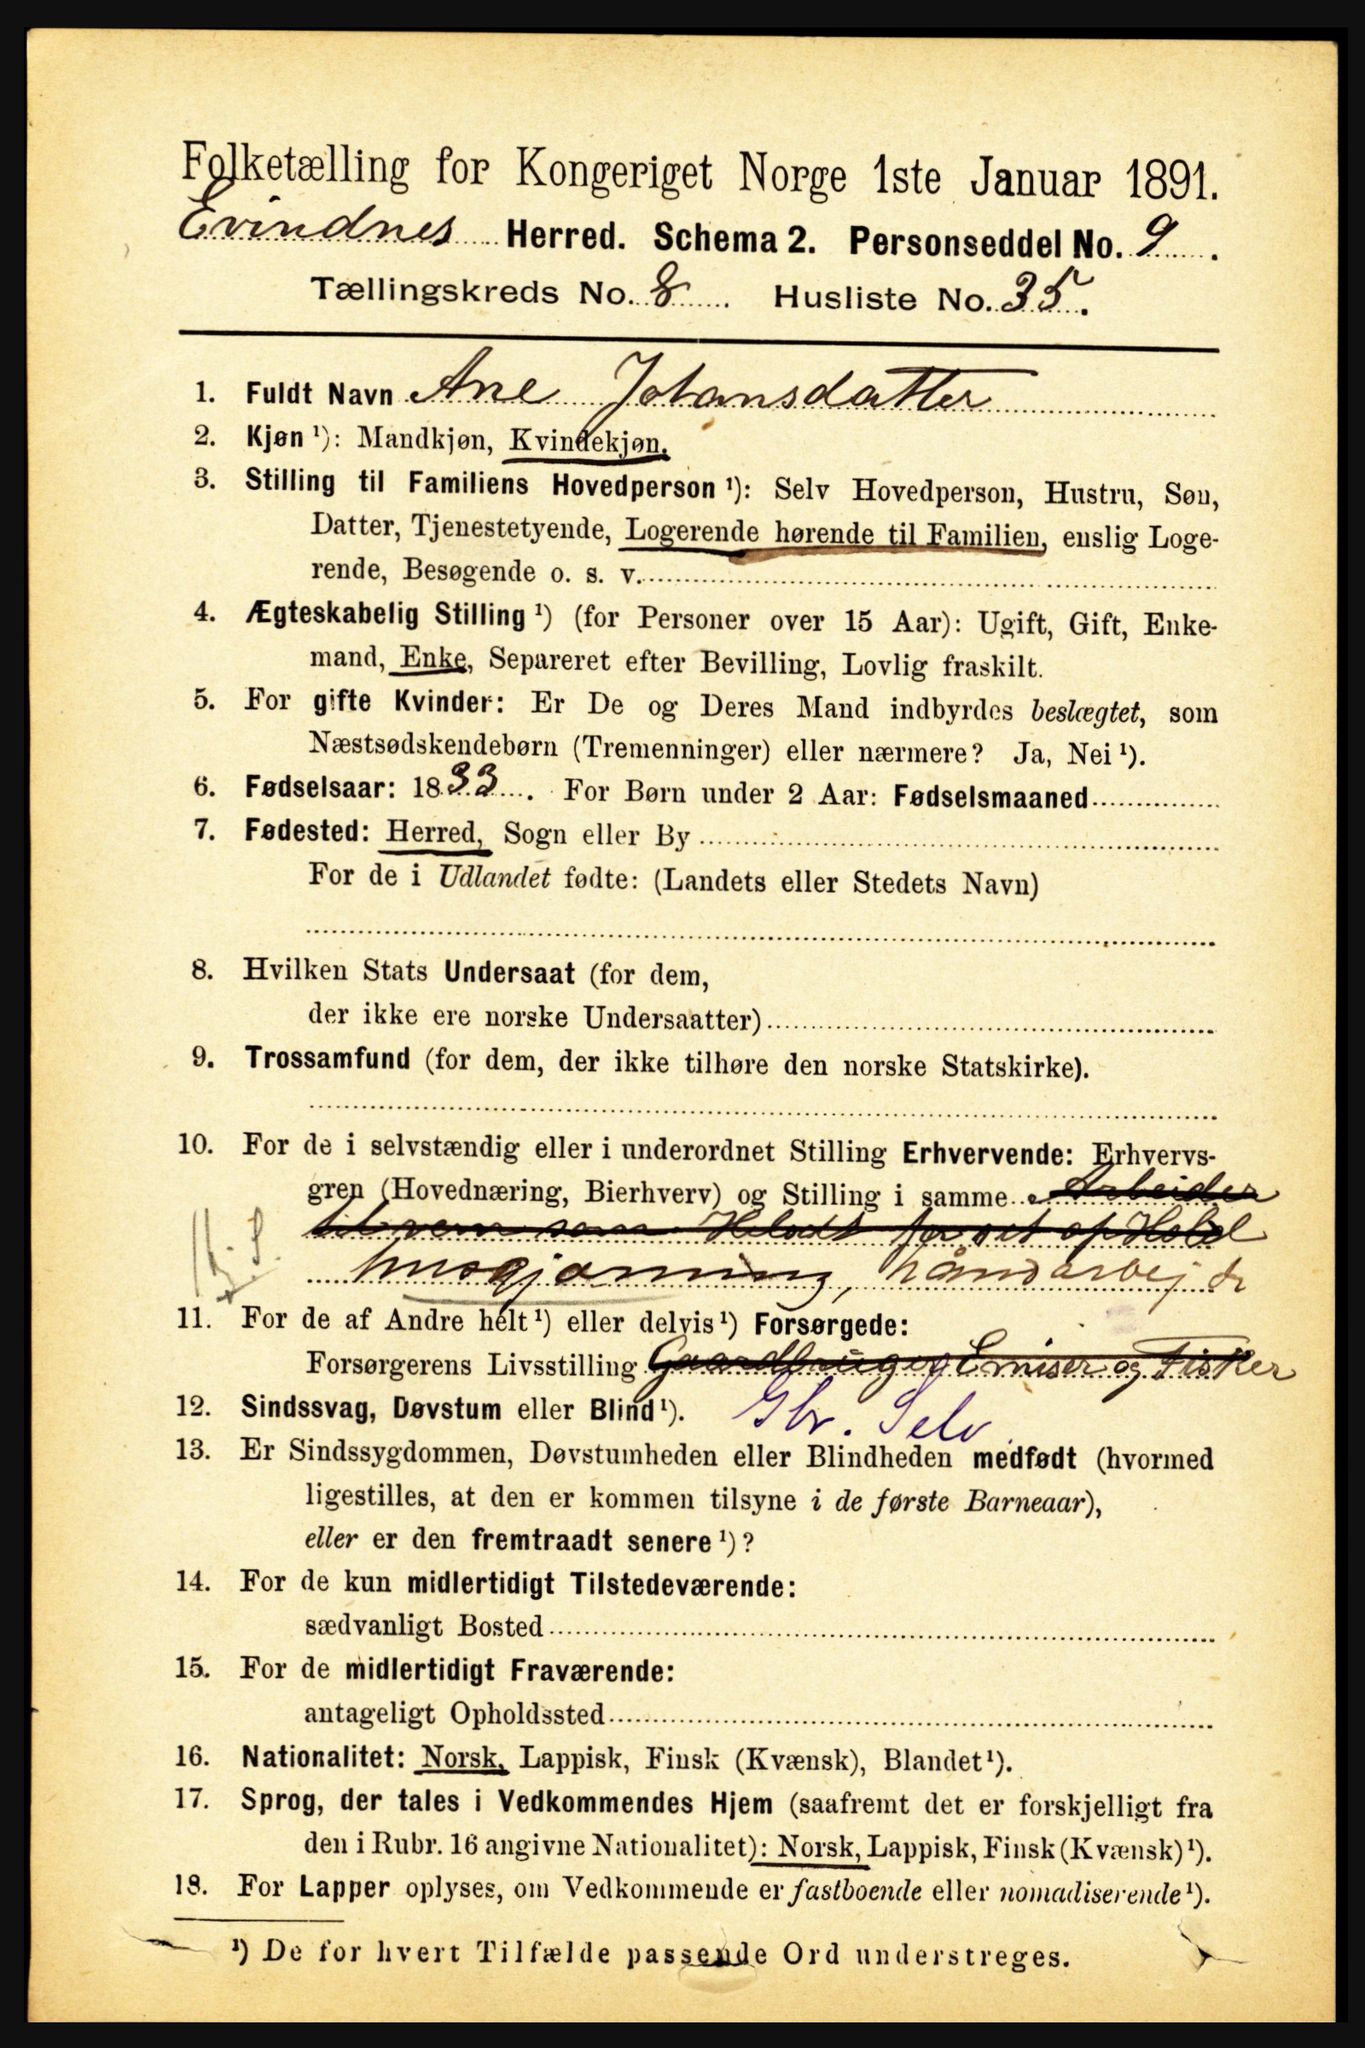 Folketælling for Kongeriget Norge 1ste Januar 1891.
Evindnes Herred. Schema 2. Personseddel No. 9.
Tællingskreds No. 8. Husliste No. 35.
1. Fuldt Navn Ane Johansdatter
2. Kjøn ¹): Mandkjøn, Kvindekjøn.
3. Stilling til Familiens Hovedperson ¹): Selv Hovedperson, Hustru, Søn,
Datter, Tjenestetyende, Logerende hørende til Familien, enslig Loge-
rende, Besøgende o. s. v.
4. Ægteskabelig Stilling ¹) (for Personer over 15 Aar): Ugift, Gift, Enke-
mand, Enke, Separeret efter Bevilling, Lovlig fraskilt.
5. For gifte Kvinder: Er De og Deres Mand indbyrdes beslægtet, som
Næstsødskendebørn (Tremenninger) eller nærmere? Ja, Nei ¹).
6. Fødselsaar: 1833. For Børn under 2 Aar: Fødselsmaaned
7. Fødested: Herred, Sogn eller By
For de i Udlandet fødte: (Landets eller Stedets Navn)
8. Hvilken Stats Undersaat (for dem,
der ikke ere norske Undersaatter)
9. Trossamfund (for dem, der ikke tilhøre den norske Statskirke).
10. For de i selvstændig eller i underordnet Stilling Erhvervende: Erhvervs-
gren (Hovednæring, Bierhverv) og Stilling i samme Arbeider
husgjærning, håndarbejde
11. For de af Andre helt ¹) eller delvis ¹) Forsørgede:
Forsørgerens Livsstilling Gaardbruger Eniser og Fisker
12. Sindssvag, Døvstum eller Blind ¹). Gbr. Selv
13. Er Sindssygdommen, Døvstumheden eller Blindheden medfødt (hvormed
ligestilles, at den er kommen tilsyne i de første Barneaar),
eller er den fremtraadt senere ¹)?
14. For de kun midlertidigt Tilstedeværende:
sædvanligt Bosted
15. For de midlertidigt Fraværende:
antageligt Opholdssted
16. Nationalitet: Norsk, Lappisk, Finsk (Kvænsk), Blandet ¹).
17. Sprog, der tales i Vedkommendes Hjem (saafremt det er forskjelligt fra
den i Rubr. 16 angivne Nationalitet): Norsk, Lappisk, Finsk (Kvænsk) ¹).
18. For Lapper oplyses, om Vedkommende er fastboende eller nomadiserende ¹).
¹) De for hvert Tilfælde passende Ord understreges.